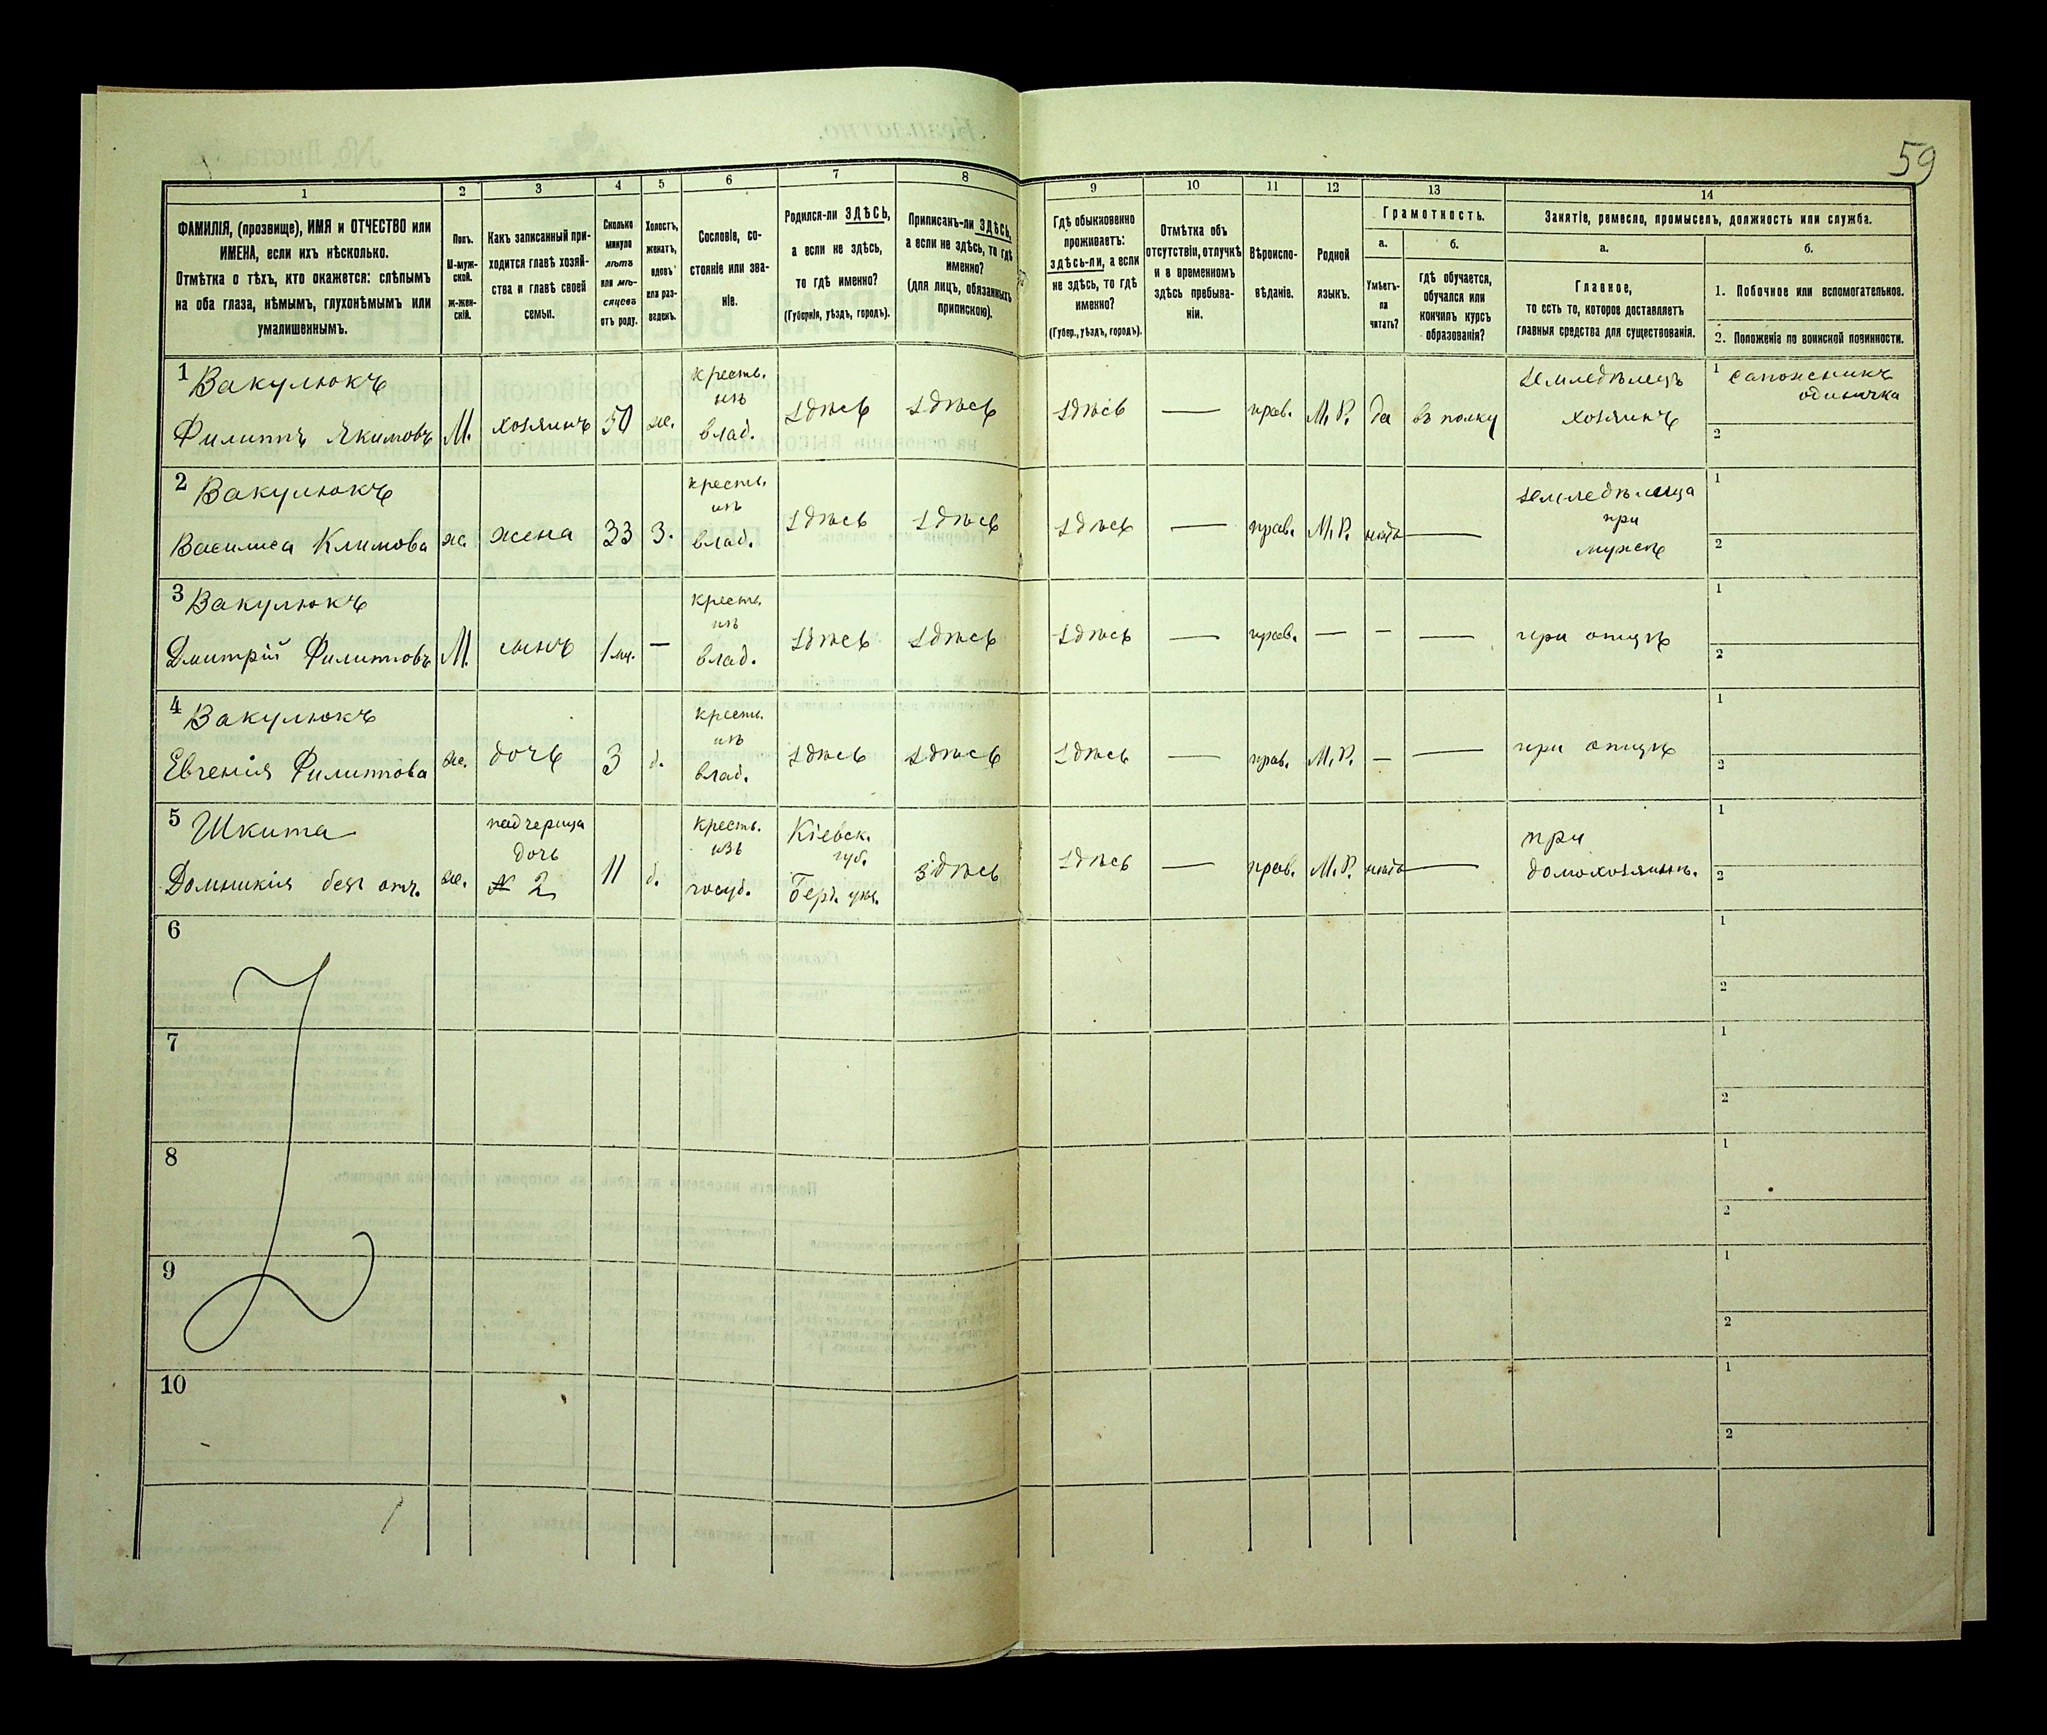 59
1 2 3 4 5 6 7 8 9 10 11 12 13 14
ФАМИЛІЯ, (прозвище), ИМЯ и ОТЧЕСТВО или
ИМЕНА, если ихъ нѣсколько.
Отмѣтка о тѣхъ, кто окажется: слѣпымъ
на оба глаза, нѣмымъ, глухонѣмымъ или
умалишеннымъ.
Полъ.
М-муж-
ской.
ж-жен-
скій.
Какъ записанный при-
ходится главѣ хозяй-
ства и главѣ своей
семьи.
Сколько
минуло
лѣтъ
или мѣ-
сяцевъ
отъ роду.
Холостъ,
женатъ,
вдовъ
или раз-
веденъ.
Сословіе, со-
стояніе или зва-
ніе.
Родился-ли ЗДѢСЬ,
а если не здѣсь,
то гдѣ именно?
(Губернія, уѣздъ, городъ).
Приписанъ-ли ЗДѢСЬ,
а если не здѣсь, то гдѣ
именно?
(для лицъ, обязанныхъ
припискою).
Гдѣ обыкновенно
проживаетъ:
здѣсь-ли, а если
не здѣсь, то гдѣ
именно?
(Губер., уѣздъ, городъ).
Отмѣтка объ
отсутствіи, отлучкѣ
и в временномъ
здѣсь пребыва-
ніи.
Вѣроиспо-
вѣданіе.
Родной
языкъ.
Грамотность.
а. б.
Умѣетъ-
ли
читать?
Гдѣ обучается,
обучался или
кончилъ курсъ
образованія?
Занятіе, ремесло, промыселъ, должность или служба.
а. б.
Главное,
то есть то, которое доставляетъ
главныя средства для существованія.
1. Побочное или вспомогательное.
2. Положеніе по воинской повинности.
1 Вакулюкъ
Филиппъ Якимовъ
М.
хозяинъ
50
ж.
кресть.
изъ
влад.
здѣсь
здѣсь
здѣсь
—
прав.
М. Р.
да
въ полку
земледѣлецъ
хозяинъ
1 сапожникъ
одиночка
2
2 Вакулюкъ
Василиса Климова
ж.
жена
33
З.
кресть.
изъ
влад.
здѣсь
здѣсь
здѣсь
—
прав.
М. Р.
нѣтъ
—
земледѣлица
при
мужѣ
1
2
3 Вакулюкъ
Дмитрій Филипповъ
М.
сынъ
1 мц.
—
кресть.
изъ
влад.
здѣсь
здѣсь
здѣсь
—
прав.
—
—
—
при отцѣ
1
2
4 Вакулюкъ
Евгенія Филиппова
ж.
дочь
3
д.
кресть.
изъ
влад.
здѣсь
здѣсь
здѣсь
—
прав.
М. Р.
—
—
при отцѣ
1
2
5 Шкита
Домникія безъ отч.
ж.
падчерица
дочь
№ 2
11
д.
кресть.
изъ
госуд.
Кіевск.
губ.
Берд. уѣз.
здѣсь
здѣсь
—
прав.
М. Р.
нѣтъ
—
при
домохозяинѣ.
1
2
6
1
2
7
1
2
8
1
2
9
1
2
10
1
2